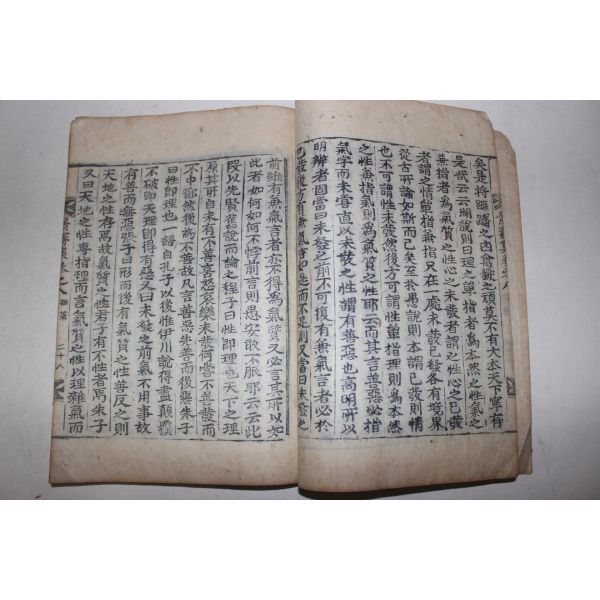 矣是將蹠蹻之凶禽獸之頑莫不有大本天下寧有
是哉云云瑚說則曰理之單指者爲本然之性氣之
兼指者爲氣質之性心之未發者謂之性心之已發
者謂之情單指兼指只在一處未發已發各有境界
從古正論如斯而已矣至於愚說則本謂已發則情
也不可謂性未發然後方可謂性單指理則爲本然
之性兼指氣則爲氣質之性耶云而其言善惡必指
氣字而未嘗直以未發之性謂有善惡也高明所以
明辨者固當曰未發之前不可復有兼氣言者必於
已發後方有兼氣者如是而不足則又當曰未發之
前雖有兼氣言者亦不得爲氣質又必言其所以如
此者如何如何不悖前言則愚安敢不服耶云云此
段以先賢舊說而論之程子曰性即理也天下之理
原其所自未有不善喜怒哀樂未發何嘗不善發而
不中節然後爲不善故凡言善惡先善而後惡朱子
曰性即理也一語自孔子以後惟伊川說得盡顚撲
不破即天理即得有惡又曰未發之前氣不用事故
有善而無惡張子曰形而後有氣質之性善反之則
天地之性存焉故氣質之性君子有不性者焉朱子
又曰天地之性專指理而言氣質之性以理雜氣而